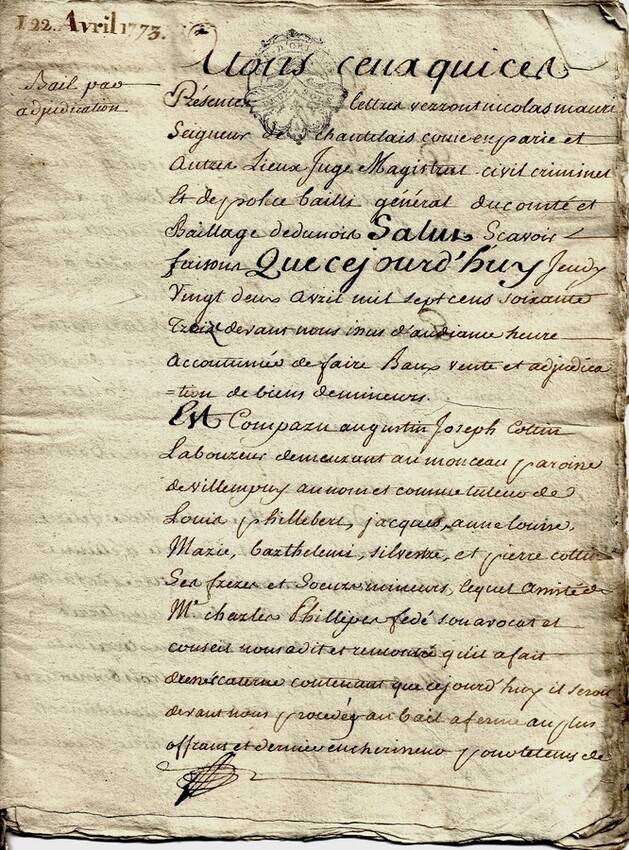 122. Avril 1773.
Bail par
adjudication
A tous ceux qui ces
Présentes lettres verront nicolas mauri
Seigneur de chantelais en partie et
Autres Lieux Juge Magistrat civil criminel
Et de police bailli général du comté et
Baillage de dunois Salut Scavoir
faisons Que cejourd'huy Jeudy
Vingt deux avril mil sept cens soixante
Treize devant nous issus d'audiance heure
accoutumée de faire Baux vente et adjudica
=tion de biens de mineurs.
Est Comparu augustin Joseph Cottin
Laboureur demeurant au monceau paroisse
de villempuy au nom et comme tuteur de
Louis phillebert, jacques, anne louise,
Marie, barthelemi, silvestre, et pierre cottin
Ses freres et Soeurs mineurs, lequel assisté de
Me. charles Phillipes fedé son avocat et
conseil nous a dit et remontré qu'il a fait
contenant que cejourd'huy il seroit
devant nous procédé au bail a ferme au plus
offrant et dernier encherisseur pour le tems de